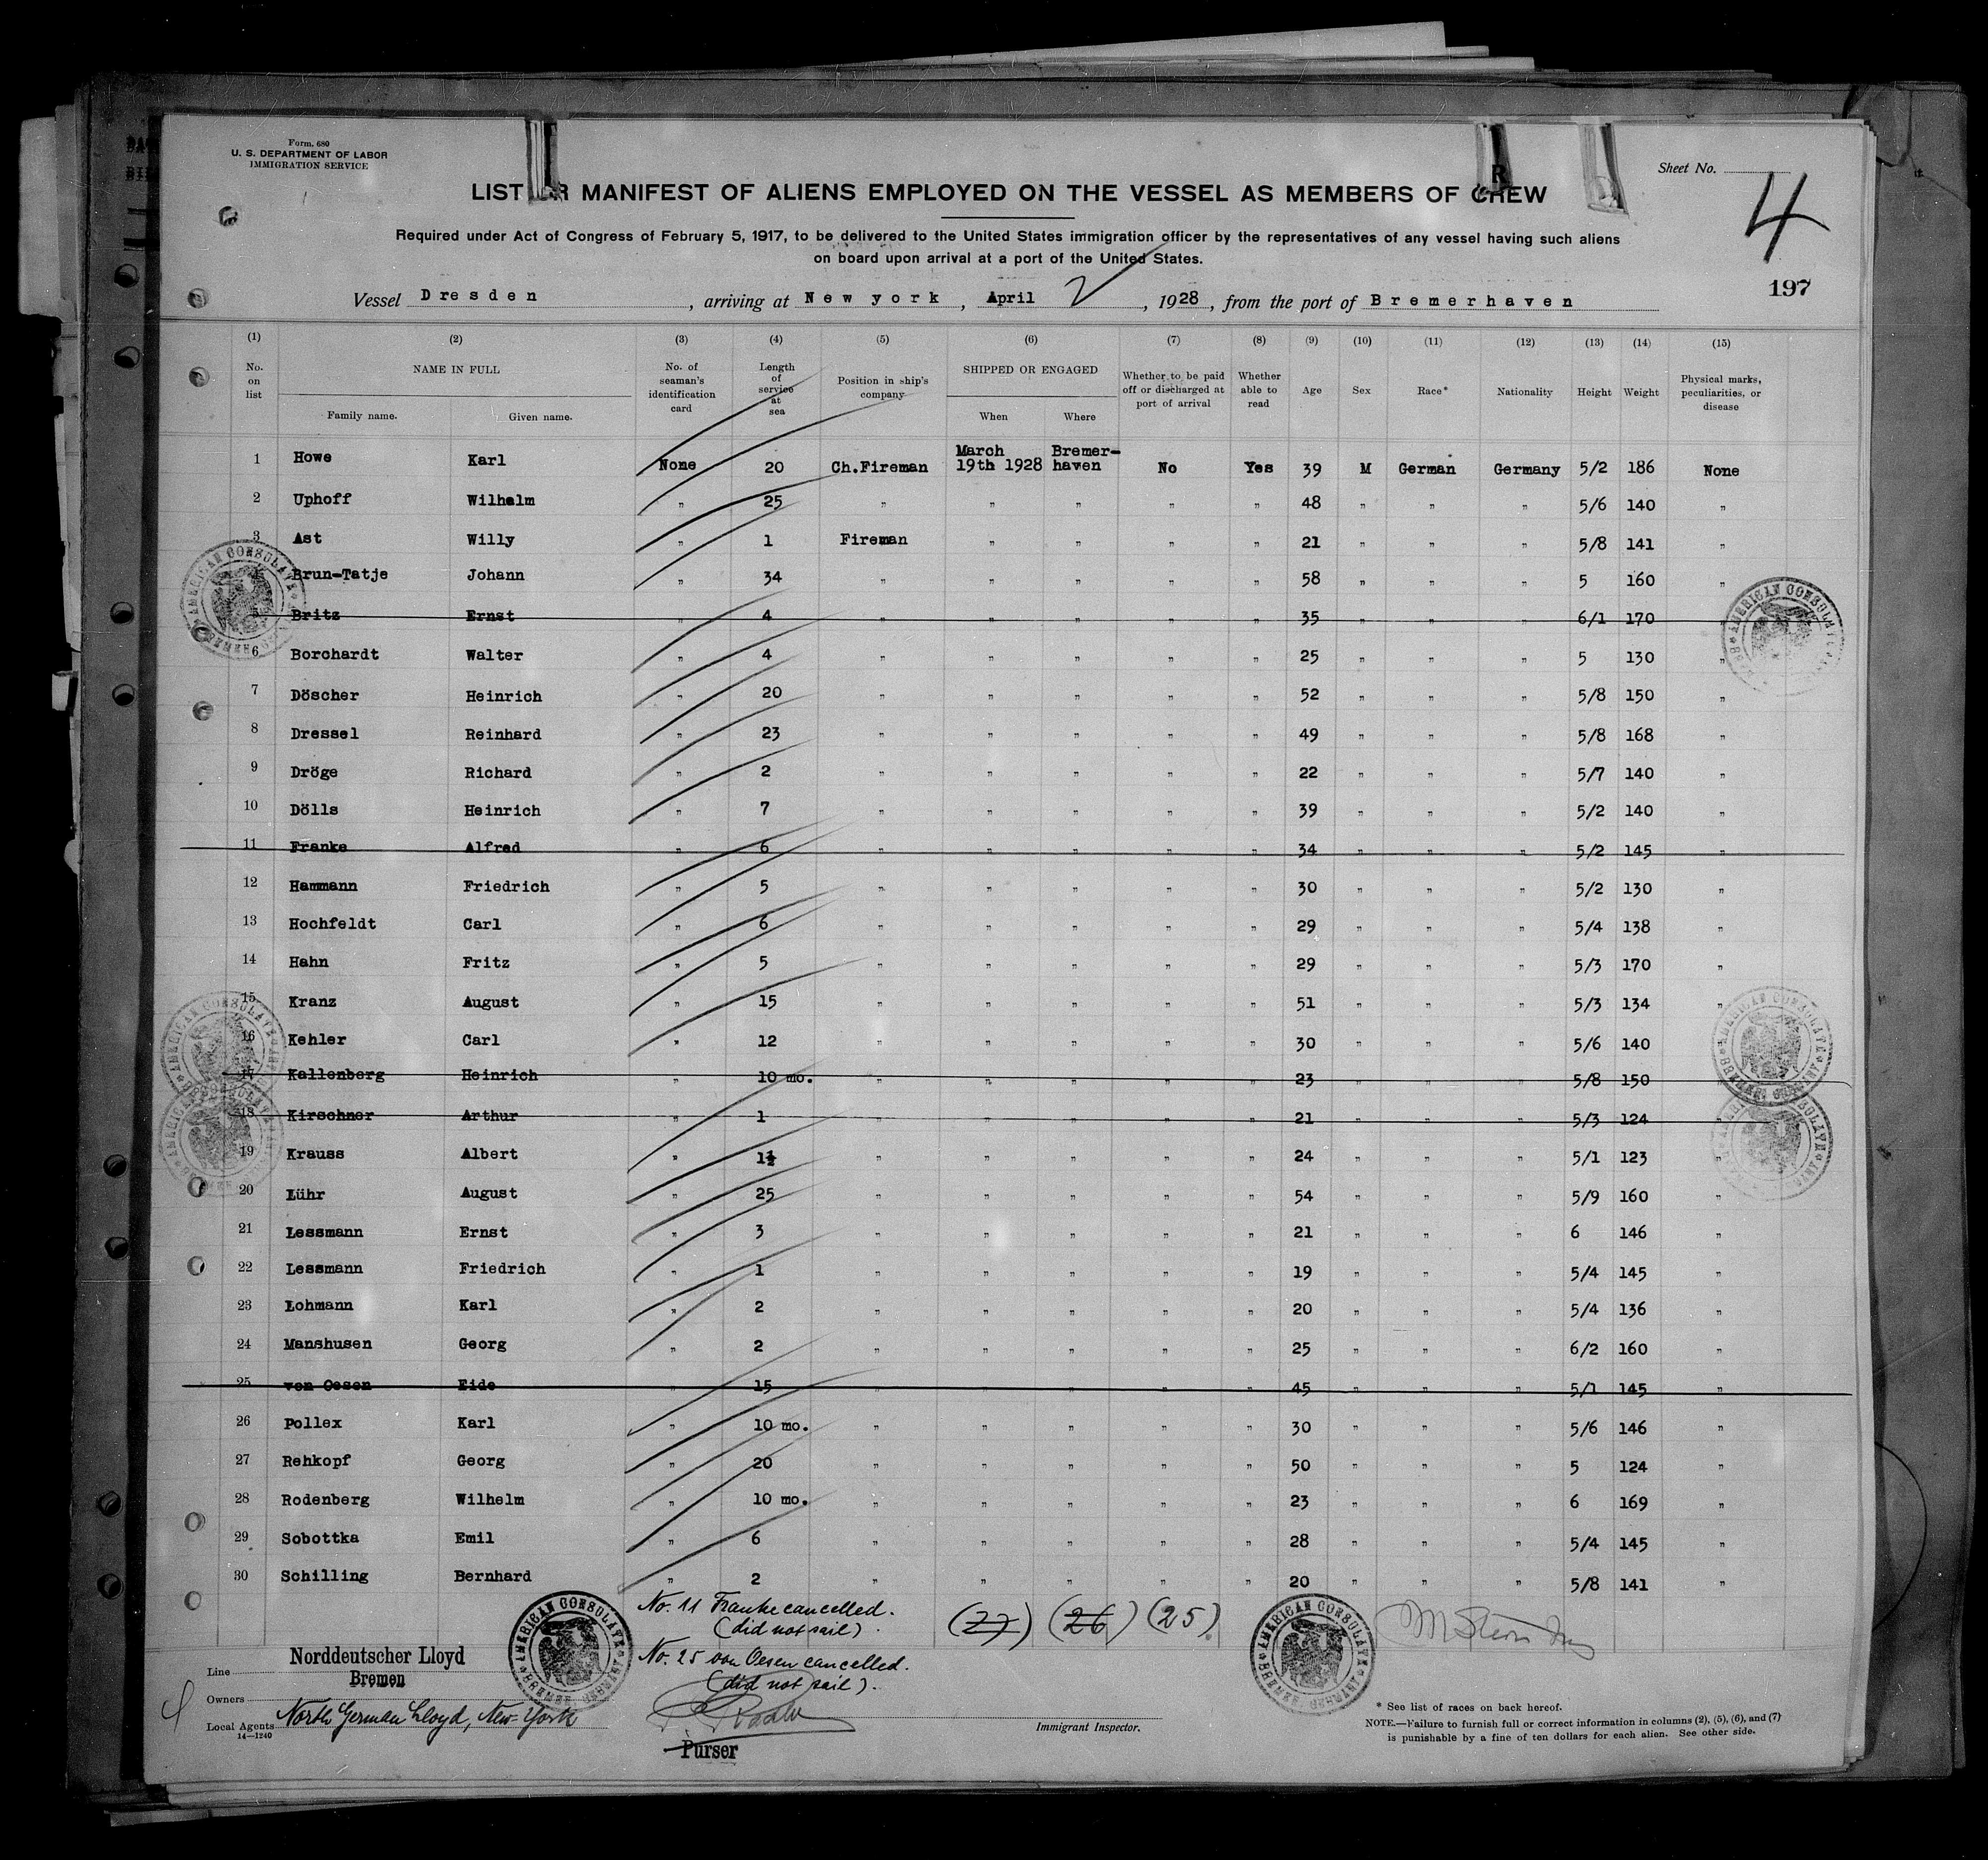 Form. 680
U. S. DEPARTMENT OF LABOR
IMMIGRATION SERVICE
Sheet No.
4
LIST OR MANIFEST OF ALIENS EMPLOYED ON THE VESSEL AS MEMBERS OF CREW
R
Required under Act of Congress of February 5, 1917, to be delivered to the United States immigration officer by the representatives of any vessel having such aliens
on board upon arrival at a port of the United States.
197
Vessel Dresden, arriving at New york, April 2, 1928, from the port of Bremerhaven
(1) (2) (3) (4) (5) (6) (7) (8) (9) (10) (11) (12) (13) (14) (15)
No. on list NAME IN FULL Family name. Given name. No. of seaman's identification card Length of service at sea Position in ship's company SHIPPED OR ENGAGED When Where Whether to be paid off or discharged at port of arrival Whether able to read Age Sex Race* Nationality Height Weight Physical marks, peculiarities, or disease
1 Howe Karl None 20 Ch.Fireman March 19th 1928 Bremer-haven No Yes 39 M German Germany 5/2 186 None
2 Uphoff Wilhelm " 25 " " " " " 48 " " " 5/6 140 "
3 Ast Willy " 1 Fireman " " " " 21 " " " 5/8 141 "
Brun-Tatje Johann " 34 " " " " " 58 " " " 5 160 "
5 Britz Ernst " 4 " " " " " 35 " " " 6/1 170 "
6 Borchardt Walter " 4 " " " " " 25 " " " 5 130 "
7 Döscher Heinrich " 20 " " " " " 52 " " " 5/8 150 "
8 Dressel Reinhard " 23 " " " " " 49 " " " 5/8 168 "
9 Dröge Richard " 2 " " " " " 22 " " " 5/7 140 "
10 Dölls Heinrich " 7 " " " " " 39 " " " 5/2 140 "
11 Franke Alfred " 6 " " " " " 34 " " " 5/2 145 "
12 Hammann Friedrich " 5 " " " " " 30 " " " 5/2 130 "
13 Hochfeldt Carl " 6 " " " " " 29 " " " 5/4 138 "
14 Hahn Fritz " 5 " " " " " 29 " " " 5/3 170 "
15 Kranz August " 15 " " " " " 51 " " " 5/3 134 "
16 Kehler Carl " 12 " " " " " 30 " " " 5/6 140 "
17 Kallenberg Heinrich " 10 mo. " " " " " 23 " " " 5/8 150 "
18 Kirschner Arthur " 1 " " " " " 21 " " " 5/3 124 "
19 Krauss Albert " 1½ " " " " " 24 " " " 5/1 123 "
20 Lühr August " 25 " " " " " 54 " " " 5/9 160 "
21 Lessmann Ernst " 3 " " " " " 21 " " " 6 146 "
22 Lessmann Friedrich " 1 " " " " " 19 " " " 5/4 145 "
23 Lohmann Karl " 2 " " " " " 20 " " " 5/4 136 "
24 Manshusen Georg " 2 " " " " " 25 " " " 6/2 160 "
25 von Oesen Eide " 15 " " " " " 45 " " " 5/1 145 "
26 Pollex Karl " 10 mo. " " " " " 30 " " " 5/6 146 "
27 Rehkopf Georg " 20 " " " " " 50 " " " 5 124 "
28 Rodenberg Wilhelm " 10 mo. " " " " " 23 " " " 6 169 "
29 Sobottka Emil " 6 " " " " " 28 " " " 5/4 145 "
30 Schilling Bernhard " 2 " " " " " 20 " " " 5/8 141 "
No. 11 Franke cancelled.
(did not sail).
(27) (26) (25)
No. 25 von Oesen cancelled.
(did not sail).
AMERICAN CONSULATE BREMEN
AMERICAN CONSULATE BREMEN
Line Norddeutscher Lloyd
Bremen
Owners
Local Agents North German Lloyd, New-York
14—1240
Purser
Immigrant Inspector.
* See list of races on back hereof.
NOTE.—Failure to furnish full or correct information in columns (2), (5), (6), and (7)
is punishable by a fine of ten dollars for each alien. See other side.